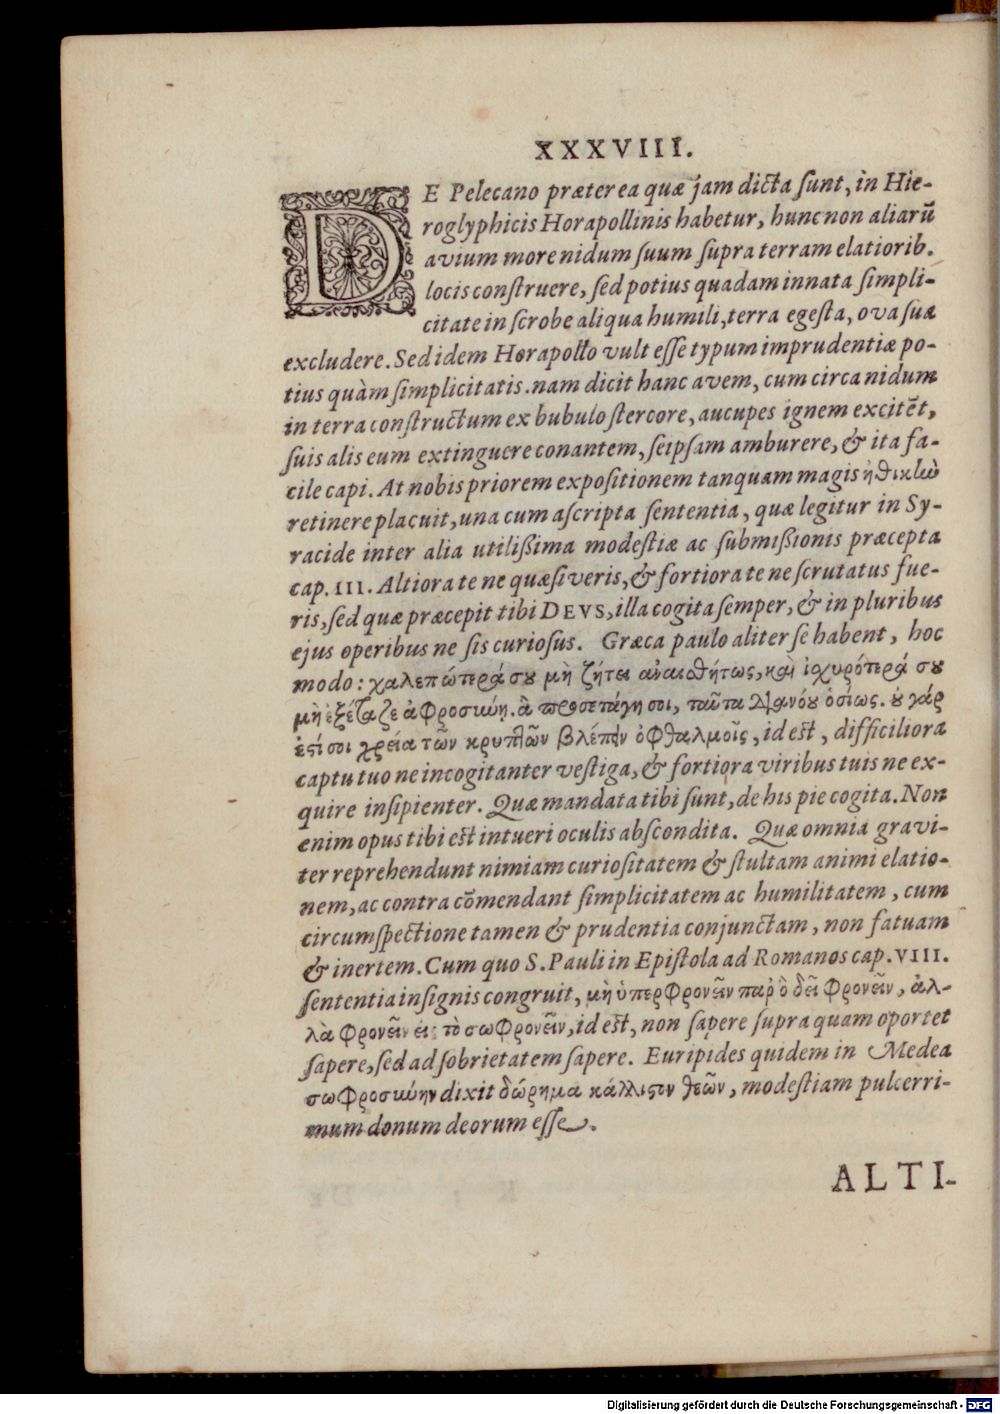 XXXVIII.
DE Pelecano præterea quæ jam dicta sunt, in Hie-
roglyphicis Horapollinis habetur, hunc non aliarū
avium more nidum suum supra terram elatiorib.
locis construere, sed potius quadam innata simpli-
citate in scrobe aliqua humili, terra egesta, ova sua
excludere. Sed idem Horapollo vult esse typum imprudentiæ po-
tius quàm simplicitatis. nam dicit hanc avem, cum circa nidum
in terra constructum ex bubulo stercore, aucupes ignem excitēt,
suis alis eum extinguere conantem, seipsam amburere, & ita fa-
cile capi. At nobis priorem expositionem tanquam magis ἠθικὼ
retinere placuit, una cum ascripta sententia, quæ legitur in Sy-
racide inter alia utilißima modestiæ ac submißionis præcepta
cap. III. Altiora te ne quæsiveris, & fortiora te ne scrutatus fue-
ris, sed quæ præcepit tibi DEVS, illa cogita semper, & in pluribus
ejus operibus ne sis curiosus. Græca paulo aliter se habent, hoc
modo: χαλεπώτερά σου μὴ ζήτει ἀναισθήτως, καὶ ἰσχυρότερά σου
μὴ ἐξέταζε ἀφροσύνῃ. ἃ προσετάγη σοι, ταῦτα διανόου ὁσίως. οὐ γάρ
ἐστί σοι χρεία τῶν κρυπτῶν βλέπειν ὀφθαλμοῖς, id est, difficiliora
captu tuo ne incogitanter vestiga, & fortiora viribus tuis ne ex-
quire insipienter. Quæ mandata tibi sunt, de his pie cogita. Non
enim opus tibi est intueri oculis abscondita. Quæ omnia gravi-
ter reprehendunt nimiam curiositatem & stultam animi elatio-
nem, ac contra cōmendant simplicitatem ac humilitatem, cum
circumspectione tamen & prudentia conjunctam, non fatuam
& inertem. Cum quo S. Pauli in Epistola ad Romanos cap. VIII.
sententia insignis congruit, μὴ ὑπερφρονεῖν παρ᾽ ὃ δεῖ φρονεῖν, ἀλ-
λὰ φρονεῖν εἰς τὸ σωφρονεῖν, id est, non sapere supra quam oportet
sapere, sed ad sobrietatem sapere. Euripides quidem in Medea
σωφροσύνην dixit δώρημα κάλλιστον θεῶν, modestiam pulcerri-
mum donum deorum esse.
ALTI-
Digitalisierung gefördert durch die Deutsche Forschungsgemeinschaft - DFG